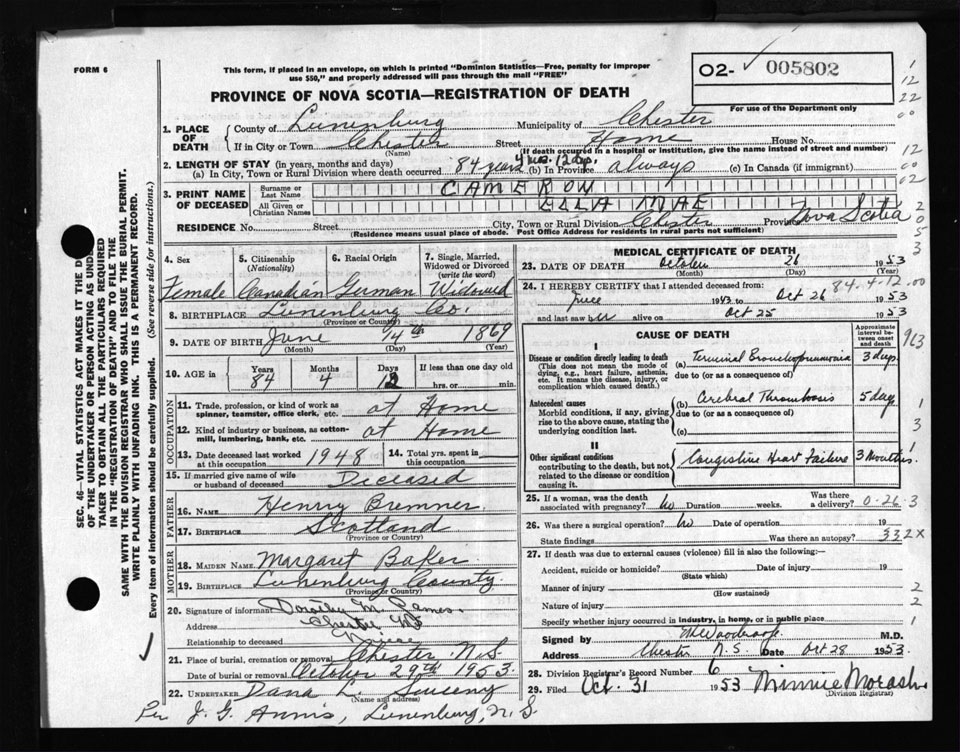 FORM 6
This form, if placed in an envelope, on which is printed "Dominion Statistics—Free, penalty for improper
use $50," and properly addressed will pass through the mail "FREE"
O2- 005802
PROVINCE OF NOVA SCOTIA—REGISTRATION OF DEATH
For use of the Department only
1. PLACE OF DEATH
County of Lunenburg Municipality of Chester
If in City, Town or Chester Street Home House No.
(Name) (If death occurred in a hospital or institution, give the name instead of street and number)
2. LENGTH OF STAY (in years, months and days)
(a) In City, Town or Rural Division where death occurred 84 years 4 mos. 12 dys. (b) In Province always (c) In Canada (if immigrant)
3. PRINT NAME OF DECEASED
Surname or Last Name CAMERON
All Given or Christian Names ELLA MAE
RESIDENCE No. Street City, Town or Rural Division Chester Province Nova Scotia
(Residence means usual place of abode. Post Office Address for residents in rural parts not sufficient)
SEC. 46—VITAL STATISTICS ACT MAKES IT THE
OF THE UNDERTAKER OR PERSON ACTING AS
TAKER TO OBTAIN ALL THE PARTICULARS REQUIRED
IN THE "REGISTRATION OF DEATH" AND TO FILE THE
SAME WITH THE DIVISION REGISTRAR WHO SHALL ISSUE THE BURIAL PERMIT.
WRITE PLAINLY WITH UNFADING INK. THIS IS A PERMANENT RECORD.
Every item of information should be carefully supplied. (See reverse side for instructions.)
4. Sex 5. Citizenship (Nationality) 6. Racial Origin 7. Single, Married, Widowed or Divorced (write the word)
Female Canadian German Widowed
8. BIRTHPLACE Lunenburg Co.
(Province or Country)
9. DATE OF BIRTH June 14th 1869
(Month) (Day) (Year)
10. AGE in Years 84 Months 4 Days 12 If less than one day old
hrs. or min.
OCCUPATION
11. Trade, profession, or kind of work as spinner, teamster, office clerk, etc. at Home
12. Kind of industry or business, as cotton-mill, lumbering, bank, etc. at Home
13. Date deceased last worked at this occupation 1948 14. Total yrs. spent in this occupation
15. If married give name of wife or husband of deceased Deceased
FATHER
16. NAME Henry Bremner
17. BIRTHPLACE Scotland
(Province or Country)
MOTHER
18. MAIDEN NAME Margaret Baker
19. BIRTHPLACE Lunenburg County
(Province or Country)
20. Signature of informant Dorothy M.
Address Chester NS
Relationship to deceased Niece
21. Place of burial, cremation or removal Chester N.S.
Date of burial or removal October 29th 1953
22. UNDERTAKER Dana L. Sweeny
(Name and address)
Per J. G. Annis, Lunenburg, N.S.
MEDICAL CERTIFICATE OF DEATH
23. DATE OF DEATH October 26 1953
(Month) (Day) (Year)
84-4-12.00
24. I HEREBY CERTIFY that I attended deceased from:
June 1943 to Oct 26 1953
and last saw her alive on Oct 25 1953
CAUSE OF DEATH
Approximate interval between onset and death
I
Disease or condition directly leading to death
(This does not mean the mode of dying, e.g., heart failure, asthenia, etc. It means the disease, injury, or complication which caused death.)
(a) Terminal Bronchopneumonia 3 days
due to (or as a consequence of)
Antecedent causes
Morbid conditions, if any, giving rise to the above cause, stating the underlying condition last.
(b) Cerebral Thrombosis 5 days
due to (or as a consequence of)
(c)
II
Other significant conditions
contributing to the death, but not related to the disease or condition causing it.
Congestive Heart Failure 3 Months
25. If a woman, was the death associated with pregnancy? No Duration weeks. Was there a delivery? 0-26-3
26. Was there a surgical operation? No Date of operation 19
State findings Was there an autopsy? 332X
27. If death was due to external causes (violence) fill in also the following:—
Accident, suicide or homicide? Date of injury 19
(State which)
Manner of injury
(How sustained)
Nature of injury
Specify whether injury occurred in industry, in home, or in public place
Signed by M.D.
Address Chester N.S. Date Oct 28 1953
28. Division Registrar's Record Number 6
29. Filed Oct. 31 1953 Minnie Morash
(Division Registrar)
1
12
22
00
12
02
2
0
5
3
963
1
3
1
2
2
1